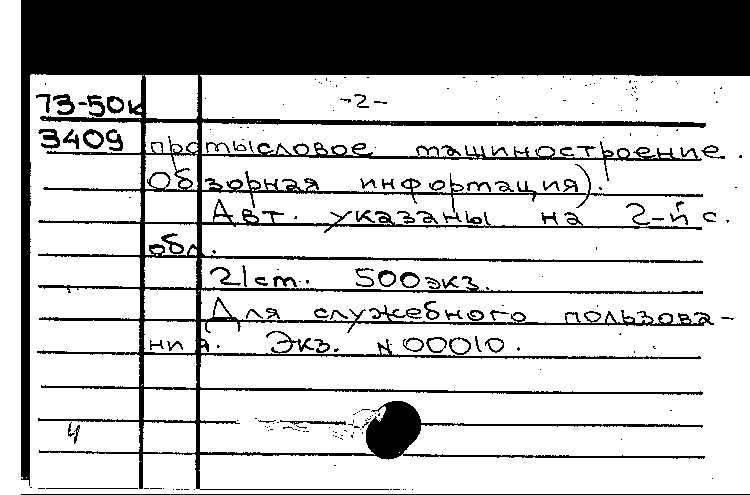 73-50к -2-
3409 промысловое машиностроение.
Обзорная информация).
Авт. указаны на 2-й с.
обл.
21 cm. 500 экз.
Для служебного пользова-
ния. Экз. N 00010.
4